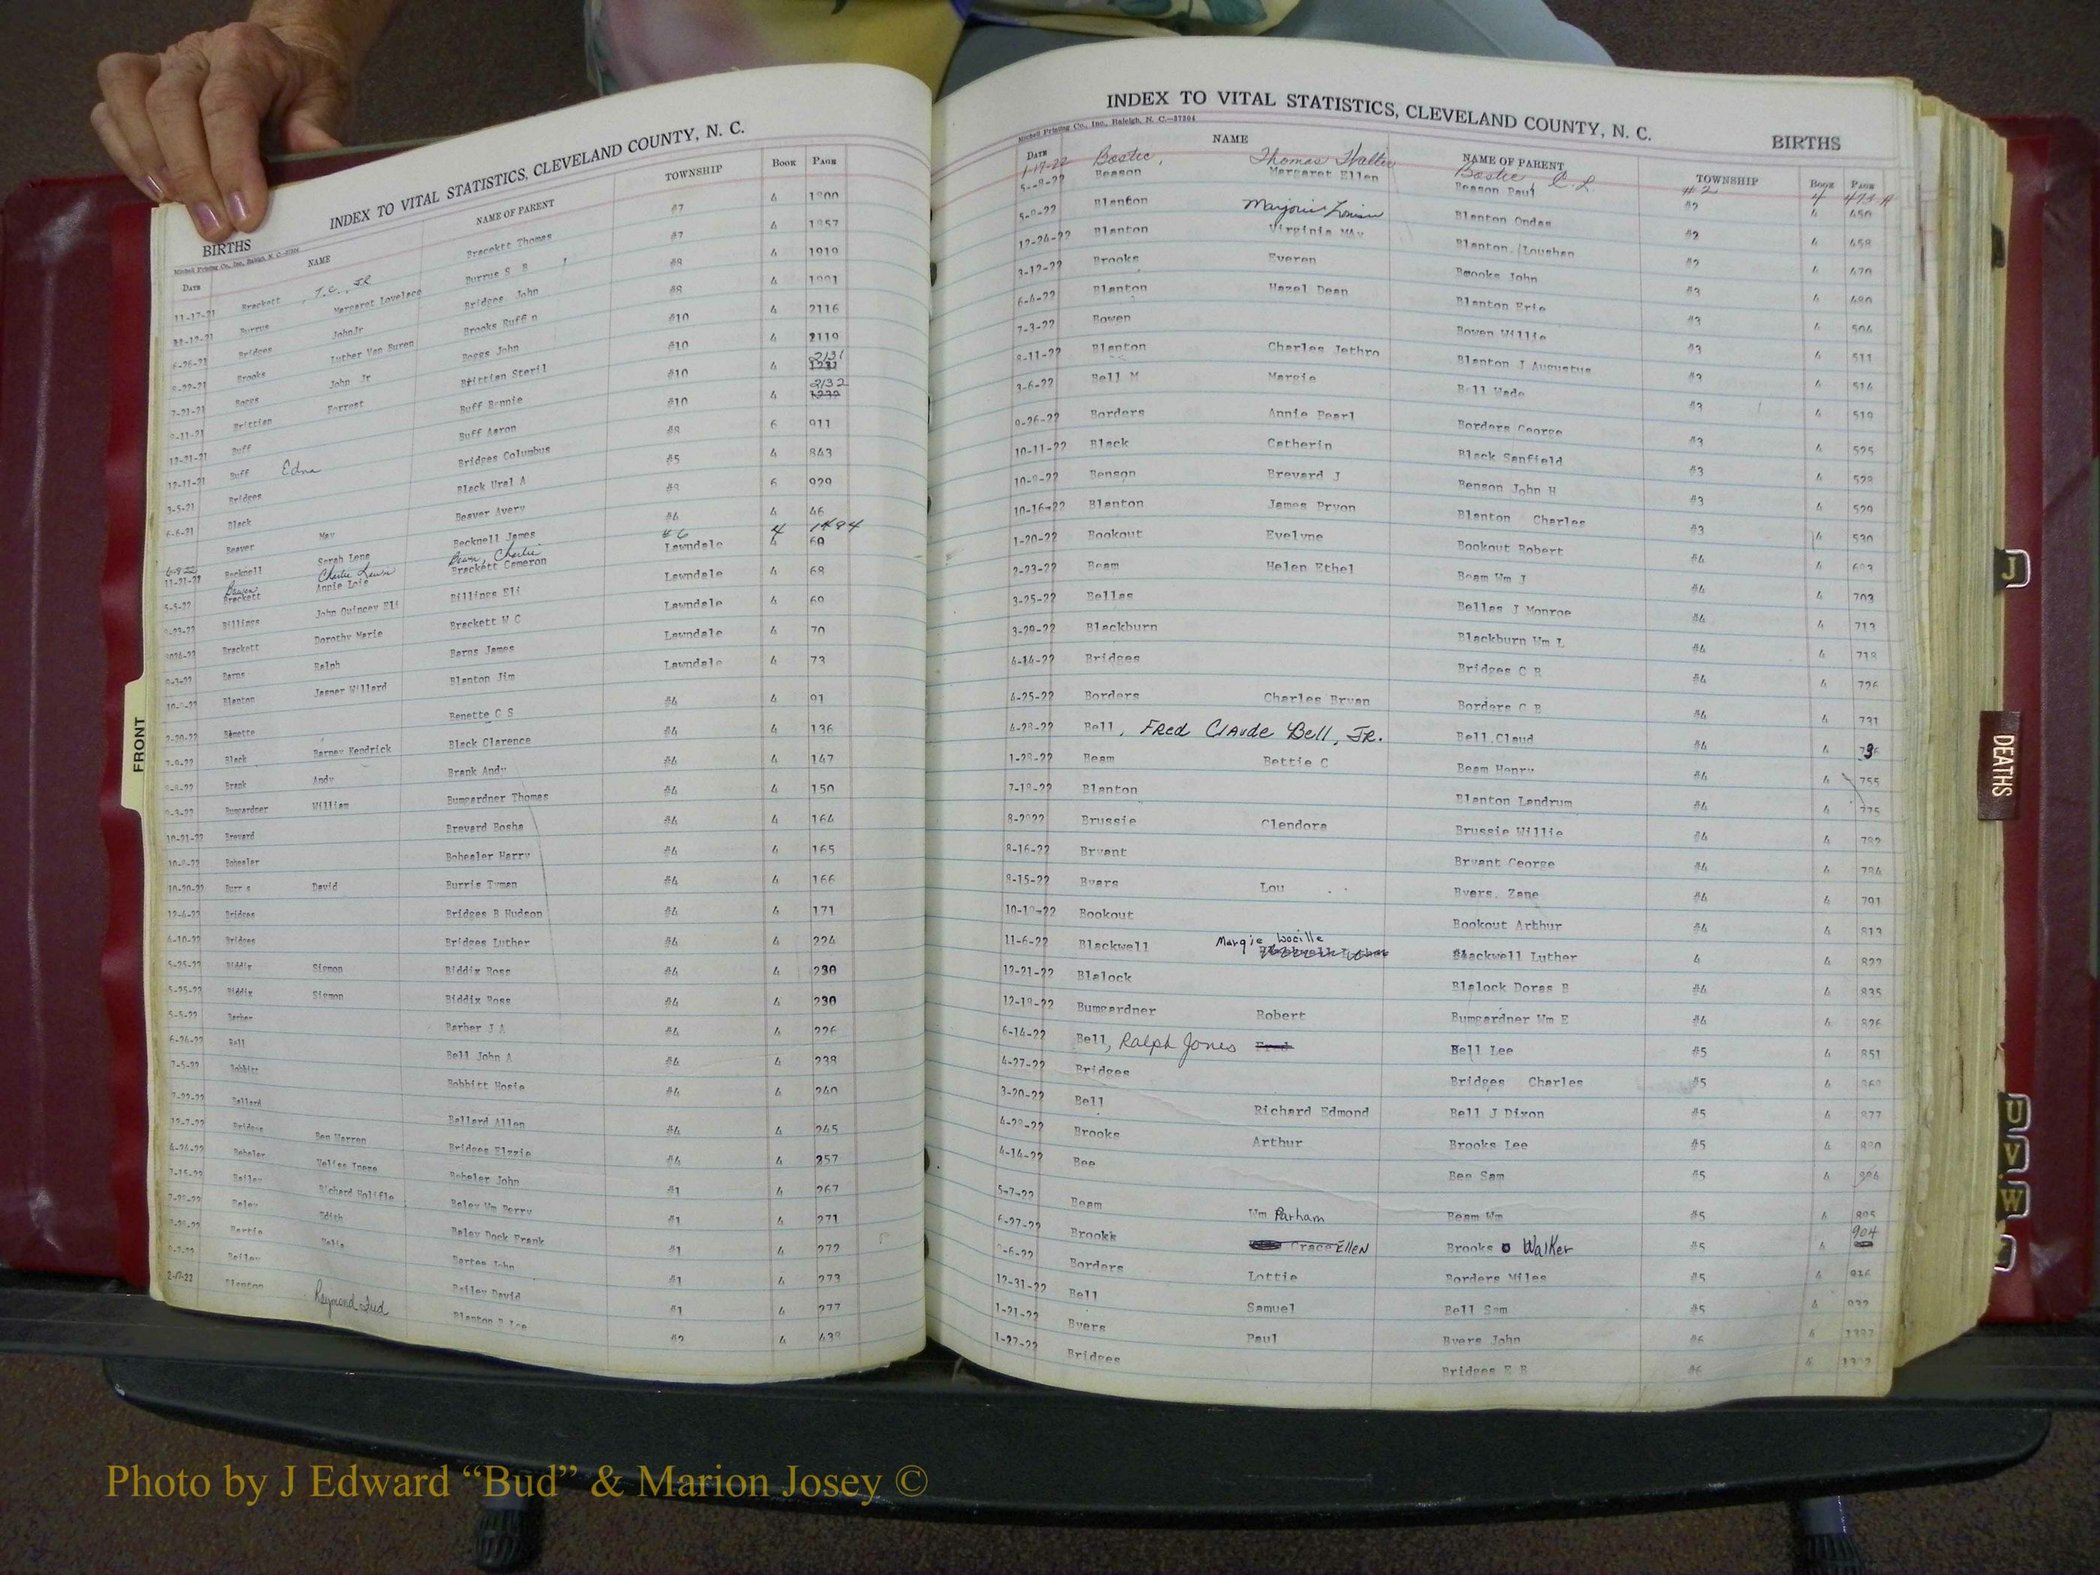 INDEX TO VITAL STATISTICS, CLEVELAND COUNTY, N. C.
BIRTHS
Mitchell Printing Co., Inc., Raleigh, N. C.
DATE NAME NAME OF PARENT TOWNSHIP BOOK PAGE
11-17-21 Brackett , T.C., JR Brackett Thomas #7 4 1800
Burrus Margaret Lovelace Burrus S B #7 4 1857
6-26-21 Bridges JohnJr Bridges John #8 4 1919
8-22-21 Brooks Luther Van Buren Brooks Ruffin #8 4 1991
7-21-21 Boggs John Jr Boggs John #10 4 2116
9-11-21 Brittian Forrest Brittian Steril #10 4 2119
12-21-21 Buff Buff Bennie #10 4 2131
12-11-21 Buff Edna Buff Aaron #10 4 2132
3-5-21 Bridges Bridges Columbus #8 6 911
6-6-21 Black Black Ural A #5 4 843
Beaver May Beaver Avery #8 6 929
11-21-21 Becknell Sarah Lena Becknell James #4 4 46
6-8-22 Charlie #6 4 1494
5-5-22 Brackett Annie Lois Brackett Cameron Lawndale 4 60
Billings John Quincey Eli Billings Eli Lawndale 4 68
Brackett Dorothy Marie Brackett W C Lawndale 4 69
Barns Ralph Barns James Lawndale 4 70
Blanton Jasper Willard Blanton Jim Lawndale 4 73
2-20-22 Benette Benette C S #4 4 91
7-9-22 Black Barney Kendrick Black Clarence #4 4 136
Brank Andy Brank Andy #4 4 147
Bumgardner William Bumgardner Thomas #4 4 150
10-21-22 Brevard Brevard Bosha #4 4 164
10-8-22 Bohealer Bohealer Harry #4 4 165
10-20-22 Burr s David Burris Tyman #4 4 166
12-4-22 Bridges Bridges B Hudson #4 4 171
4-10-22 Bridges Bridges Luther #4 4 224
5-25-22 Biddix Sigmon Biddix Ross #4 4 230
5-25-22 Biddix Sigmon Biddix Ross #4 4 230
5-5-22 Barber Barber J A #4 4 226
6-24-22 Bell Bell John A #4 4 238
7-5-22 Bobbitt Bobbitt Hosie #4 4 240
7-22-22 Ballard Ballard Allen #4 4 245
12-7-22 Bridges Ben Warren Bridges Elzzie #4 4 257
4-24-22 Beheler Beheler John #1 4 267
7-15-22 Bailey Richard Baley Wm Perry #1 4 271
Baley Edith Baley Dock Frank #1 4 272
#1 4 273
Bailey Bailey David #1 4 277
2-17-22 Blanton Raymond Blanton B Lee #2 4 438
INDEX TO VITAL STATISTICS, CLEVELAND COUNTY, N. C.
BIRTHS
Mitchell Printing Co., Inc., Raleigh, N. C.—37304
DATE NAME NAME OF PARENT TOWNSHIP BOOK PAGE
1-17-22 Bostic, Thomas Walter Bostic C. L. #2 4 473-A
5-9-22 Beason Margaret Ellen Beason Paul #2 4 450
5-9-22 Blanton Marjorie Blanton Ondas #2 4 458
12-24-22 Blanton Virginia May Blanton Loushan #2 4 470
3-12-22 Brooks Everen Brooks John #3 4 490
6-4-22 Blanton Hazel Dean Blanton Erie #3 4 504
7-3-22 Bowen Bowen Willie #3 4 511
8-11-22 Blanton Charles Jethro Blanton J Augustus #3 4 514
3-6-22 Bell M Margie Bell Wade #3 4 519
9-26-22 Borders Annie Pearl Borders George #3 4 525
10-11-22 Black Catherin Black Sanfield #3 4 528
10-9-22 Benson Brevard J Benson John H #3 4 529
10-16-22 Blanton James Pryon Blanton Charles #3 4 530
1-20-22 Bookout Evelyne Bookout Robert #4 4 693
2-23-22 Beam Helen Ethel Beam Wm J #4 4 703
3-25-22 Bellas Bellas J Monroe #4 4 713
3-29-22 Blackburn Blackburn Wm L #4 4 718
4-14-22 Bridges Bridges C R #4 4 726
4-25-22 Borders Charles Bryan Borders C B #4 4 731
4-28-22 Bell, Fred Claude Bell, Jr. Bell.Claud #4 4 736
1-28-22 Beam Bettie C Beam Henry #4 4 755
7-18-22 Blanton Blanton Landrum #4 4 775
8-2022 Brussie Clendora Brussie Willie #4 4 782
8-16-22 Bryant Bryant George #4 4 784
8-15-22 Byars Lou Byers. Zane #4 4 791
10-18-22 Bookout Bookout Arthur #4 4 813
11-6-22 Blackwell Margie Lucille Blackwell Luther 4 4 822
12-21-22 Blalock Blalock Doras B #4 4 835
12-18-22 Bumgardner Robert Bumgardner Wm E #4 4 826
6-14-22 Bell, Ralph Jones Fred Bell Lee #5 4 851
4-27-22 Bridges Bridges Charles #5 4 868
3-20-22 Bell Richard Edmond Bell J Dixon #5 4 877
4-28-22 Brooks Arthur Brooks Lee #5 4 880
4-14-22 Bee Bee Sam #5 4 884
5-7-22 Beam Wm Parham Beam Wm #5 4 895
6-27-22 Brooks Grace Ellen Brooks Walker #5 4 904
9-6-22 Borders Lottie Borders Miles #5 4 916
12-31-22 Bell Samuel Bell Sam #5 4 932
1-21-22 Byers Paul Byers John #6 4 1387
1-27-22 Bridges Bridges E B #6 4
FRONT
J
DEATHS
U
V
W
Photo by J Edward “Bud” & Marion Josey ©